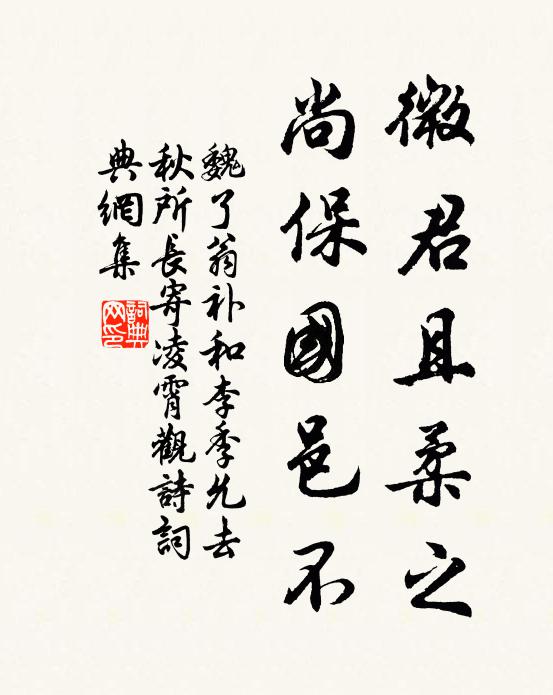 微君且柔之
尚保國邑不
魏了翁补和李季允去
秋所長寄凌霄觀詩詞
典網集
詞典
网印